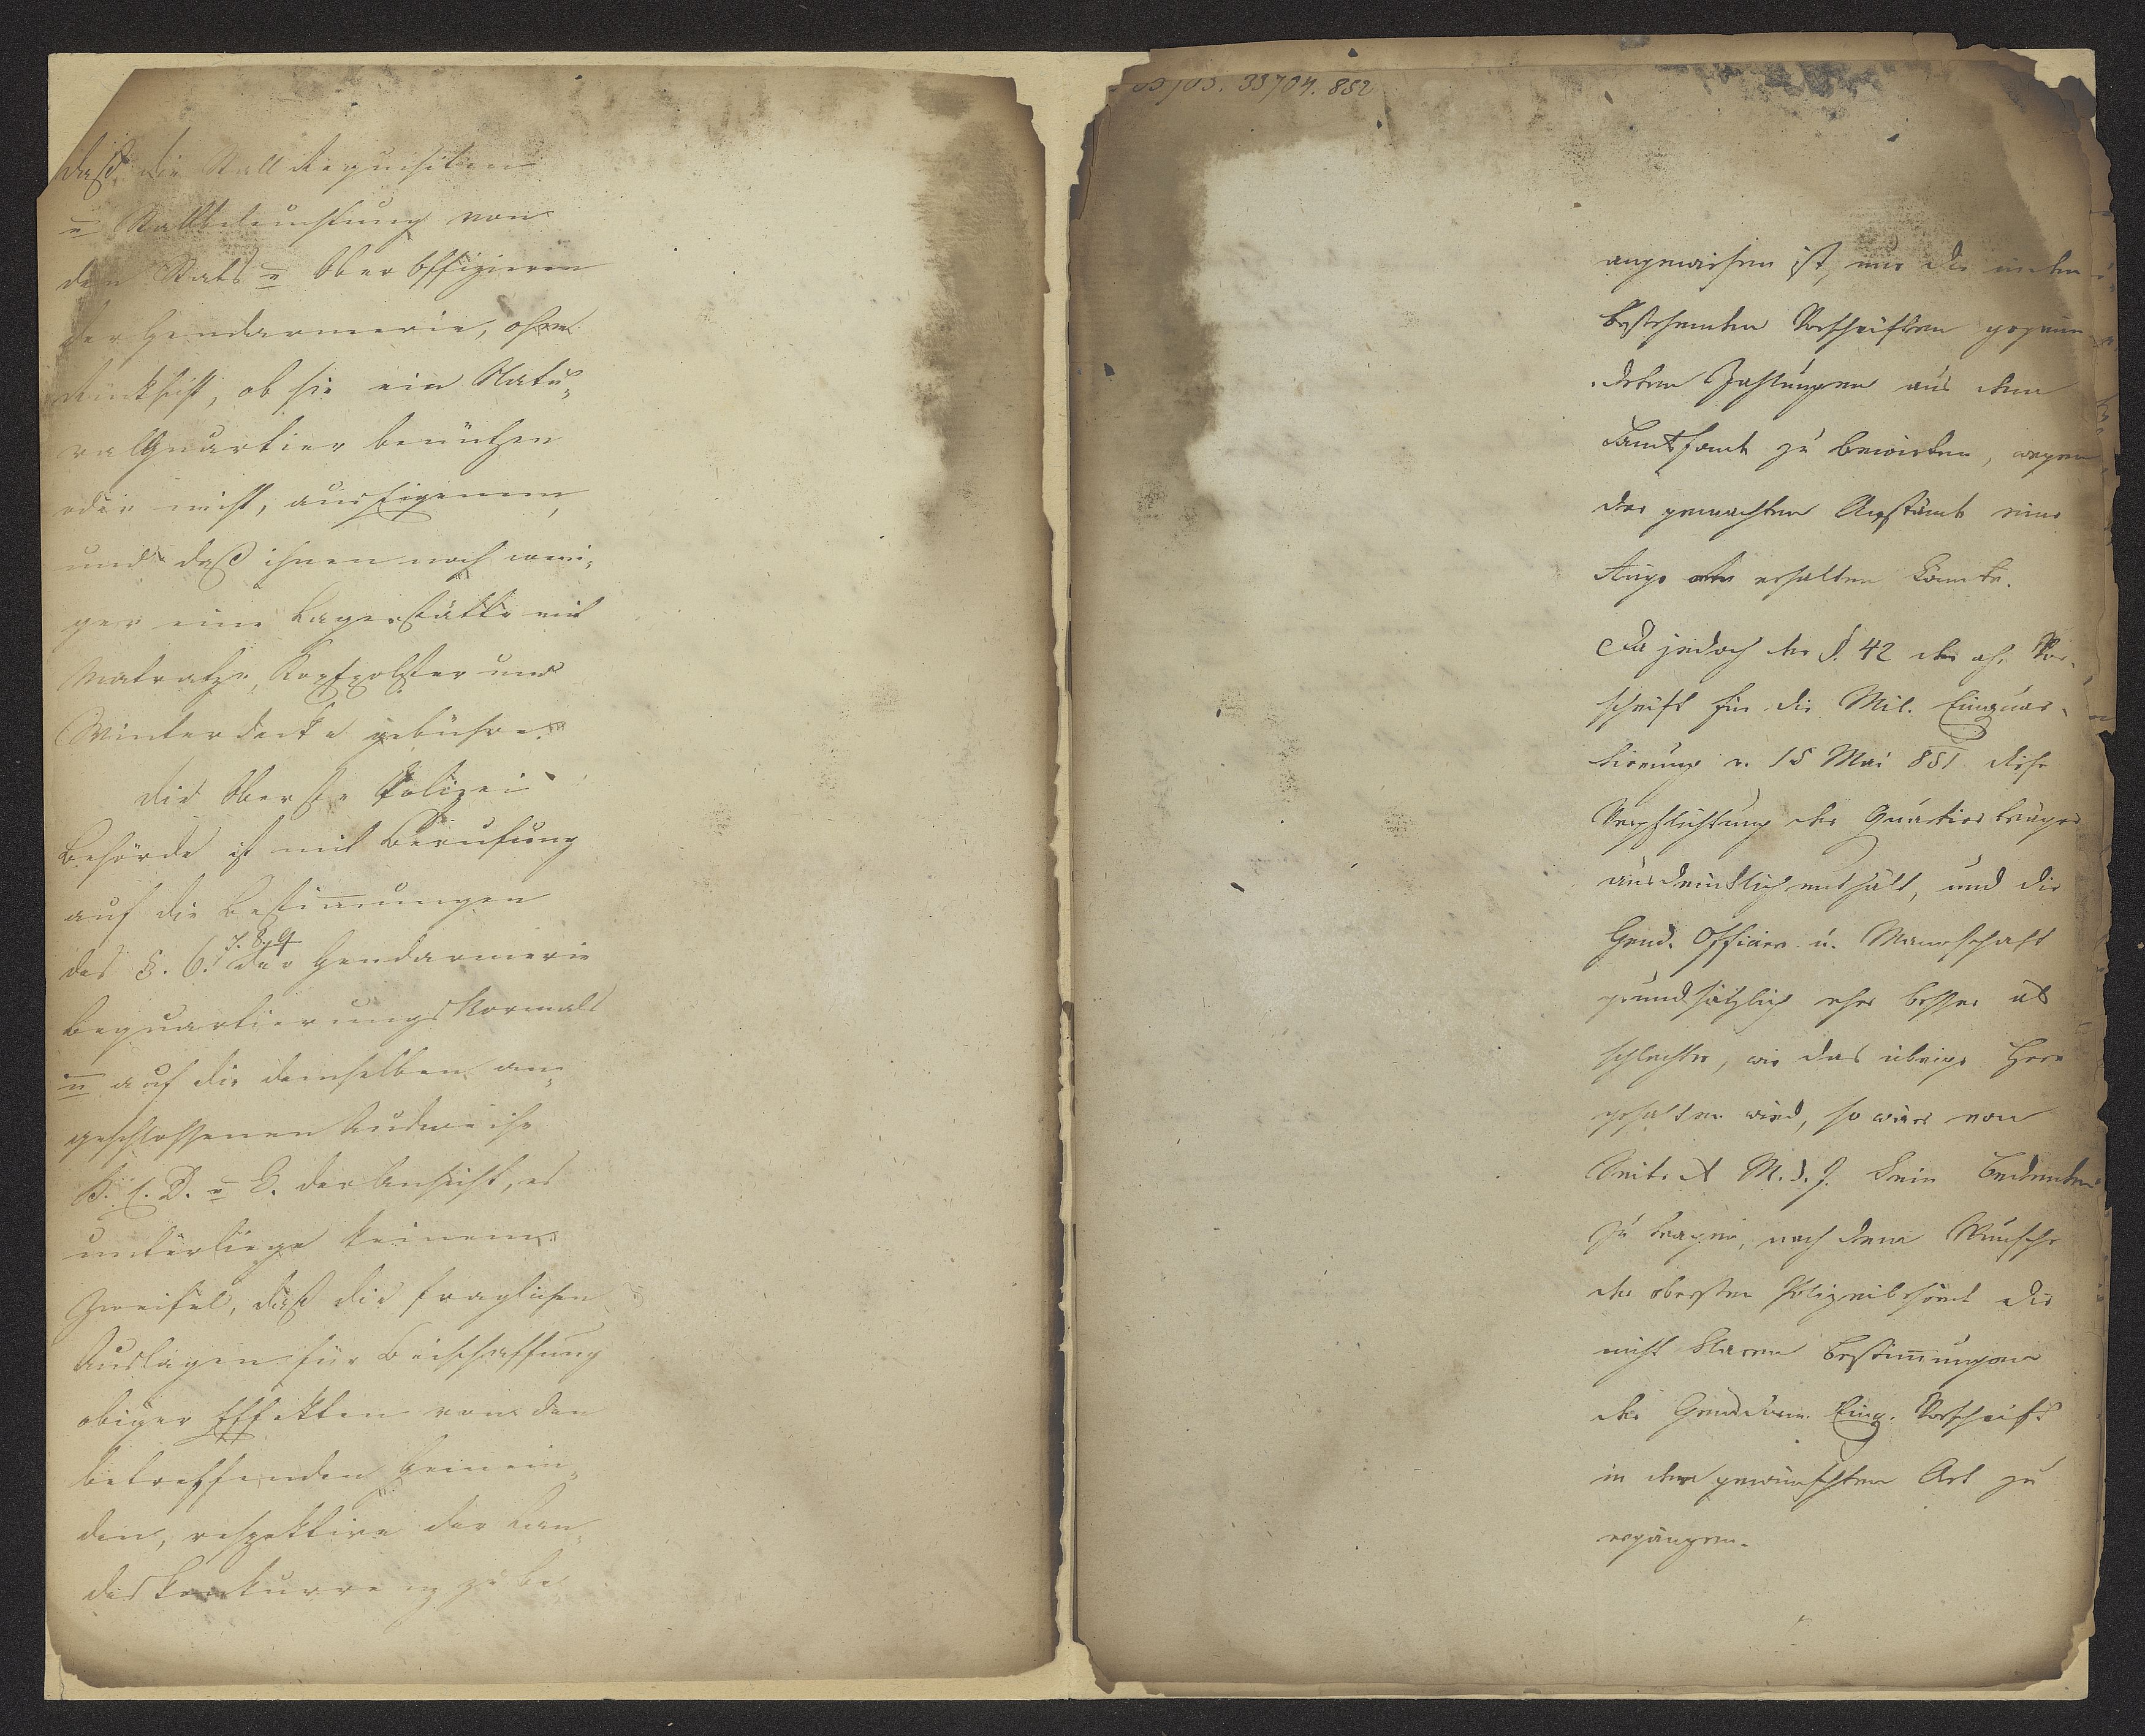 daß die Stall Requisiten
u Stallbeleuchtung von
den Stabs u Ober Offizieren
der Gendarmerie, ohne
Rücksicht, ob sie ein Natu„
ralquartier benützen
oder nicht, aus Eigenem,
und daß ihnen noch weni„
ger eine Lagerstätte mit
Matratze, Kopfpolster und
Winterdecke gebühre.
Die Oberste Polizei
Behörde ist mit Berufung
auf die Bestimmungen
des §. 6. 7. 8. 9 der Gendarmerie
Bequartierungs Normals
u auf die demselben an„
geschlossenen Ausweise
B. C. D. u E. der Ansicht, es
unterliege keinem
Zweifel, daß die fraglichen
Auslagen für Beischaffung
obiger Effekten von den
betreffenden Gemein„
den, respektive der Lan„
des Konkurrenz zu be
33704. 852
angewiesen ist, nur die in den
bestehenden Vorschriften gegrün
deten Zahlungen aus dem
Landesfond zu bewirken, wegen
der gemachten Anstände eine
Rüge erhalten könnte.
Da jedoch der §. 42 der ah. Vor„
schrift für die Mil. Einquar„
tierung v. 15 Mai 851 diese
Verpflichtung der Quartierträger
ausdrücklich enthält, und die
Gend. Officiere u. Mannschaft
grundsätzlich eher besser als
schlechter, wie das übrige Heer
gehalten wird, so wäre von
Seite des M. d. I. kein Bedenken
zu tragen, nach dem Wunsche
der obersten Polizeibehörde die
nicht klaren Bestimmungen
der Gendarm. Einq. Vorschrift
in der gewünschten Art zu
ergänzen.